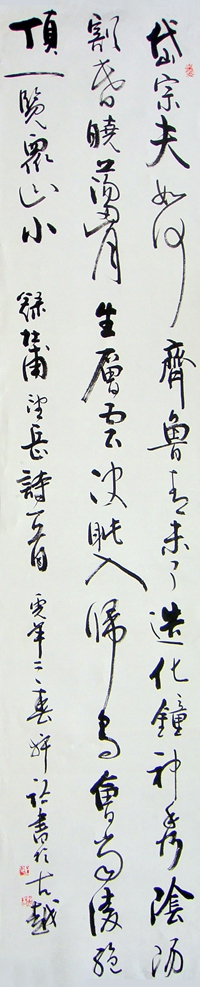 岱宗夫如何齊魯青未了造化鐘神秀陰陽
割昏曉蕩胸生層云決眦入歸鳥會當凌絕
頂一覽眾山小 錄杜甫望岳詩一首 年二春 書於古越